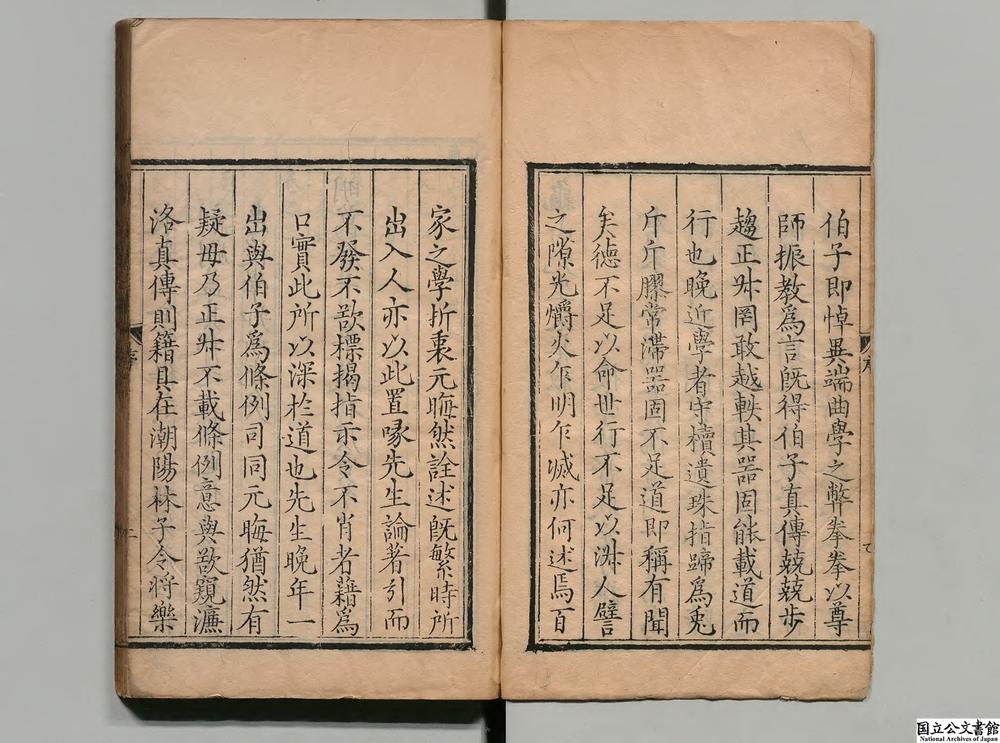 伯子即悼異端曲學之弊拳拳以尊
師振教爲言旣得伯子真傳兢兢步
趨正叔罔敢越軼其器固能載道而
行也晚近學者守櫝遺珠指蹄爲兎
斤斤膠常滯器固不足道即稱有聞
矣德不足以命世行不足以淑人譬
之隙光爝火乍明乍滅亦何述焉百
家之學折衷元晦然詮述旣繁時所
出入人亦以此置喙先生論著引而
不發不欲標揭指示令不肖者藉爲
口實此所以深於道也先生晚年一
出與伯子爲條例司同元晦猶然有
疑毋乃正叔不載條例意與欲窺濂
洛真傳則籍具在潮陽林子令將樂
序
二
国立公文書館
National Archives of Japan